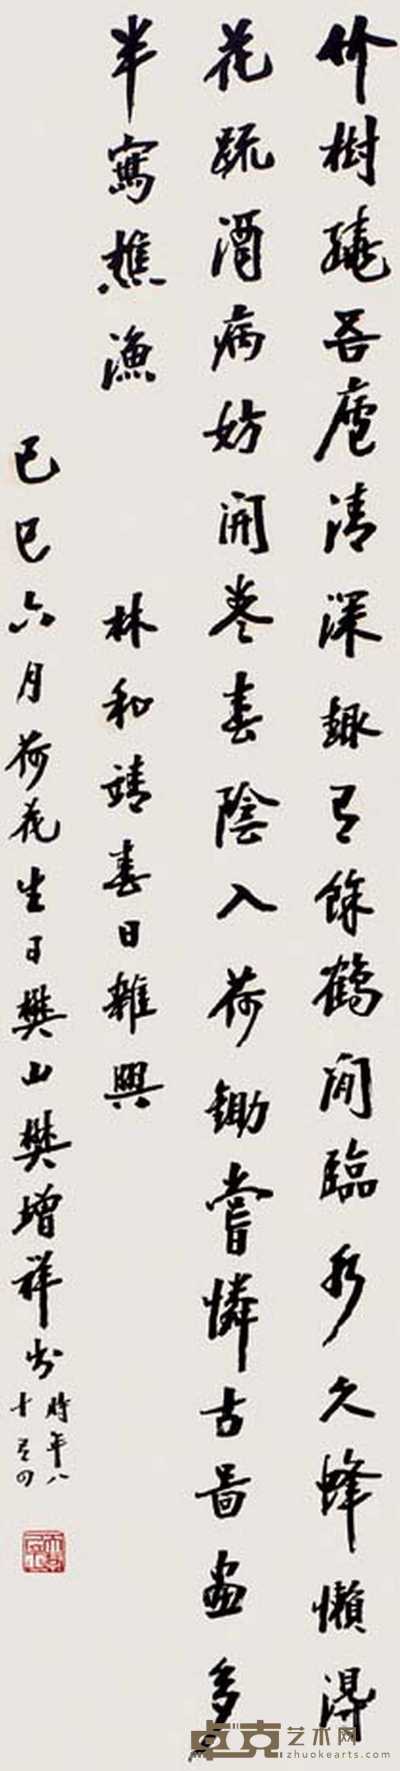 竹樹繞吾廬清深趣有餘鶴閒臨水久蜂懶得
花疏酒病妨開卷春陰入荷鋤嘗憐古圖畫多
半寫樵漁
林和靖春日雜興
己巳六月荷花生日樊山樊增祥書時年八
十有四
卓克艺术网
zhuokearts.com